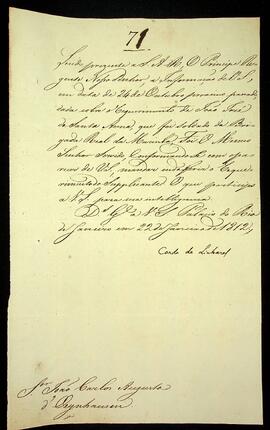 71
Sendo prezente a S. A. R. O Principe Re-
gente Nosso Senhor a Informação de V. S.
em data de 24 de Outubro proximo passado,
dada sobre o Requerimento de João José
de Santa Anna, que foi soldado da Bri-
gada Real da Marinha, Foi O Mesmo
Senhor Servido Conformando-se com o pa-
recer de V. S. mandar indeferir o Reque-
rimento do Supplicante O que participo
a V. S. para sua intelligencia.
D.s G.e a V. S. Palacio do Rio
de Janeiro em 22 de Janeiro de 1812
Conde de Linhares
S.r João Carlos Augusto
d'Oeynhausen